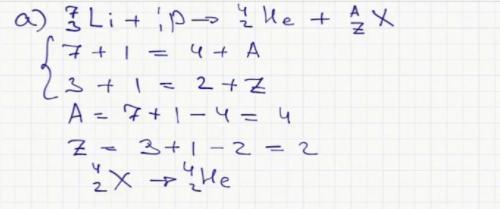 а) ⁷₃Li + ¹₁p → ⁴₂He + ᴬ_Z X
{ 7 + 1 = 4 + A
3 + 1 = 2 + Z
A = 7 + 1 - 4 = 4
Z = 3 + 1 - 2 = 2
⁴₂X → ⁴₂He